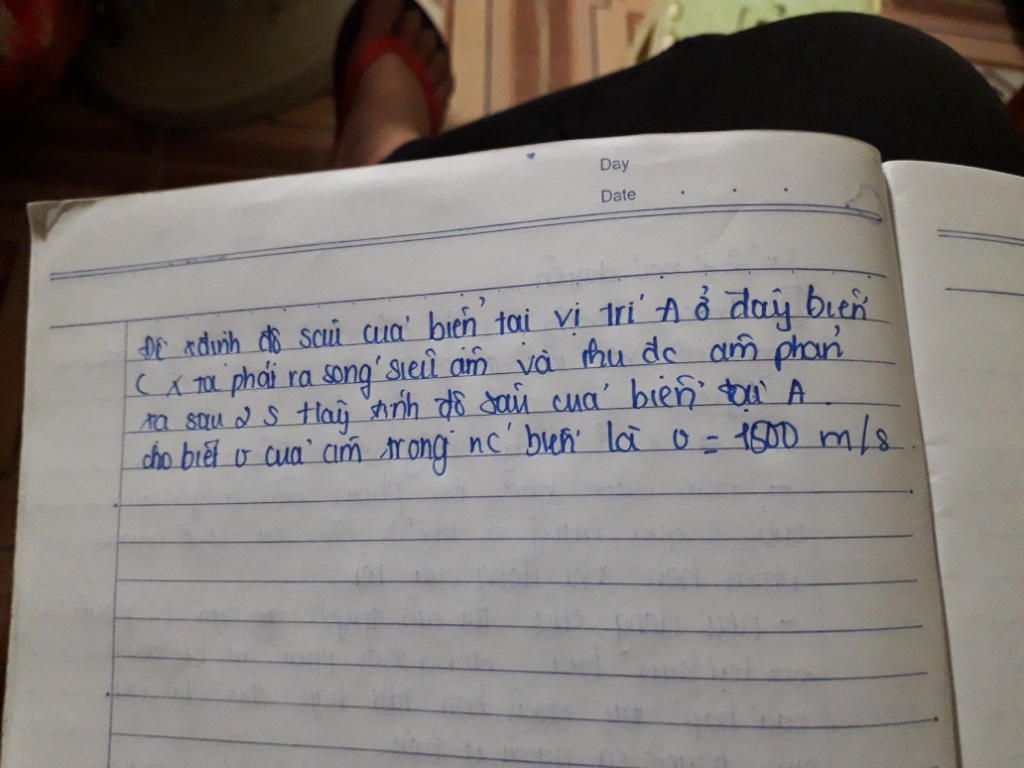 Day
Date
Để xđịnh độ sâu của biển tại vị trí A ở đáy biển
ra phải ra song siêu âm và thu đc âm phản
ra sau 2 s Hãy tính độ sâu của biển tại A.
cho biết v của âm trong nc biển là v = 1500 m/s.